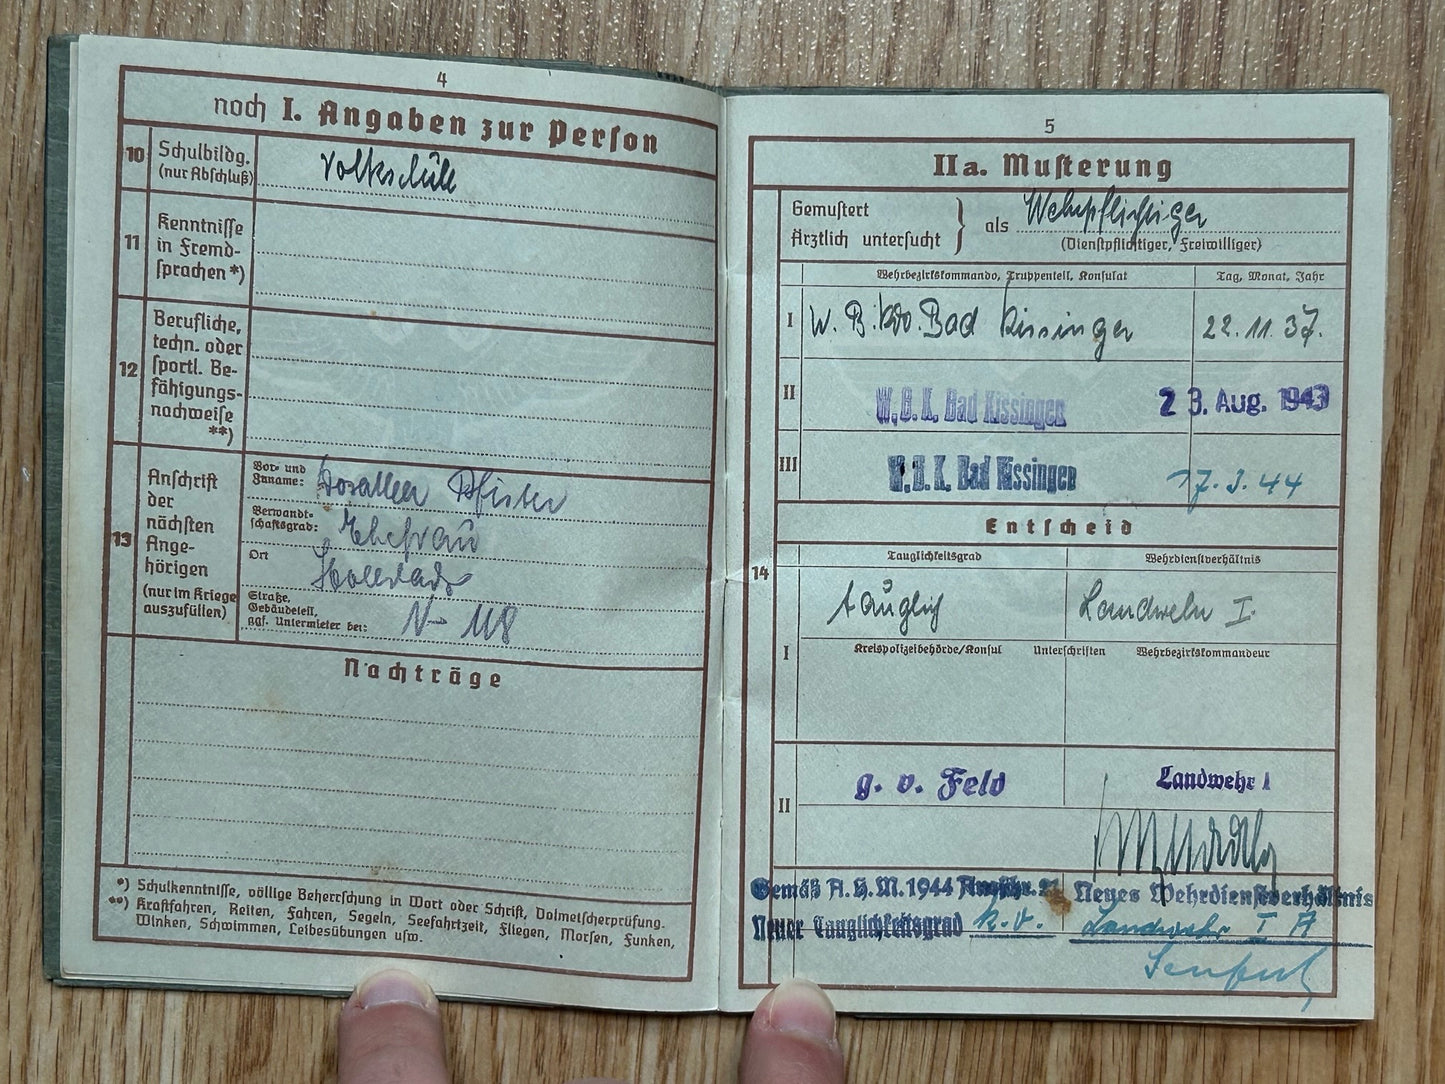 4
noch I. Angaben zur Perſon
10 Schulbildg. (nur Abſchluß)
Volkschule
11 Kenntniſſe in Fremdſprachen *)
12 Berufliche, techn. oder ſportl. Befähigungsnachweiſe **)
13 Anſchrift der nächſten Angehörigen (nur im Kriege auszufüllen)
Vor- und Zuname: Pfister
Verwandtſchaftsgrad: Ehefrau
Ort
Straße, Gebäudeteil, ggf. Untermieter bei: N- 118
Nachträge
*) Schulkenntniſſe, völlige Beherrſchung in Wort oder Schrift, Dolmetſcherprüfung.
**) Kraftfahren, Reiten, Fahren, Segeln, Seefahrtzeit, Fliegen, Morſen, Funken,
Winken, Schwimmen, Leibesübungen uſw.
5
IIa. Muſterung
Gemuſtert
Ärztlich unterſucht } als Wehrpflichtiger
(Dienſtpflichtiger, Freiwilliger)
Wehrbezirkskommando, Truppenteil, Konſulat Tag, Monat, Jahr
I W. B. Kdo. Bad Kissingen 22.11.37.
II W.B.K. Bad Kissingen 23. Aug. 1943
III W.B.K. Bad Kissingen 17.3.44
14
Entſcheid
Tauglichkeitsgrad Wehrdienſtverhältnis
I tauglich Landwehr I.
Kreispolizeibehörde/Konſul Unterſchriften Wehrbezirkskommandeur
II g. v. Feld Landwehr I
Gemäß A. H. M. 1944 Neues Wehrdienſtverhältnis
Neuer Tauglichkeitsgrad k.v. Landwehr I A